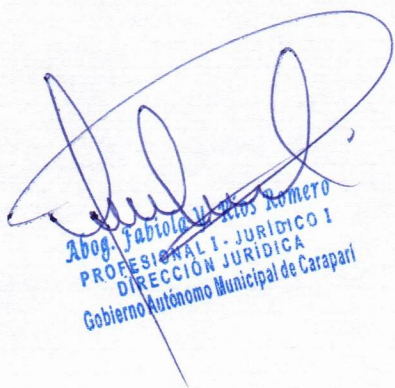 Abog. Fabiola V. Rios Romero
PROFESIONAL I - JURÍDICO I
DIRECCIÓN JURÍDICA
Gobierno Autónomo Municipal de Caraparí